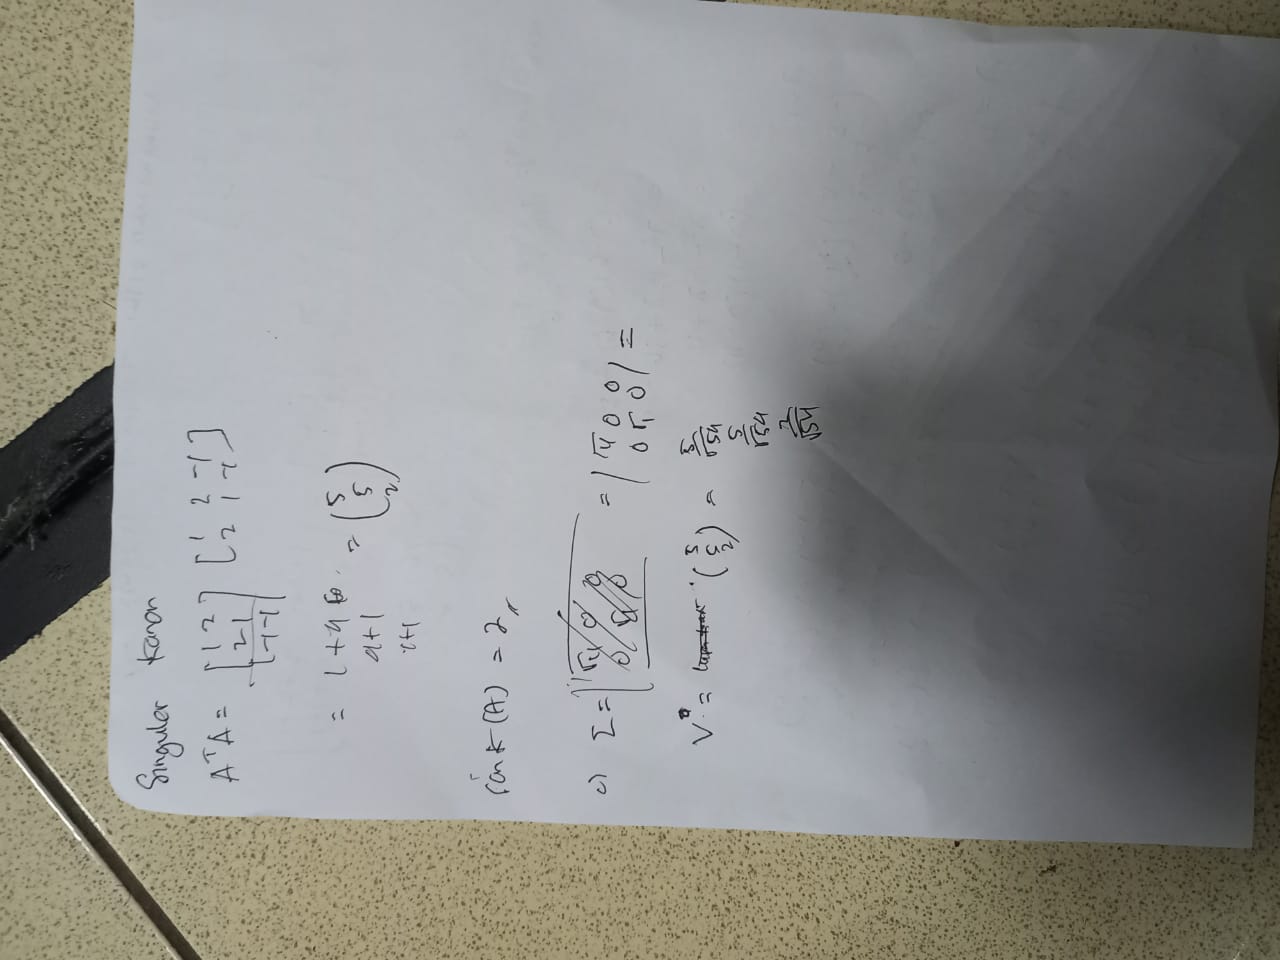 Singuler kanan
AᵀA = [1 2 / 2 -1 / -1 -1] [1 2 -1 / 2 1 -1]
= 1+4 = (5 / 5 / 2)
4+1
1+1
rank (A) = 2,
c) Σ = = | √4 0 0 / 0 √1 0 | =
V = (5 / 5 / 2) = 5/√54
5/√54
2/√54